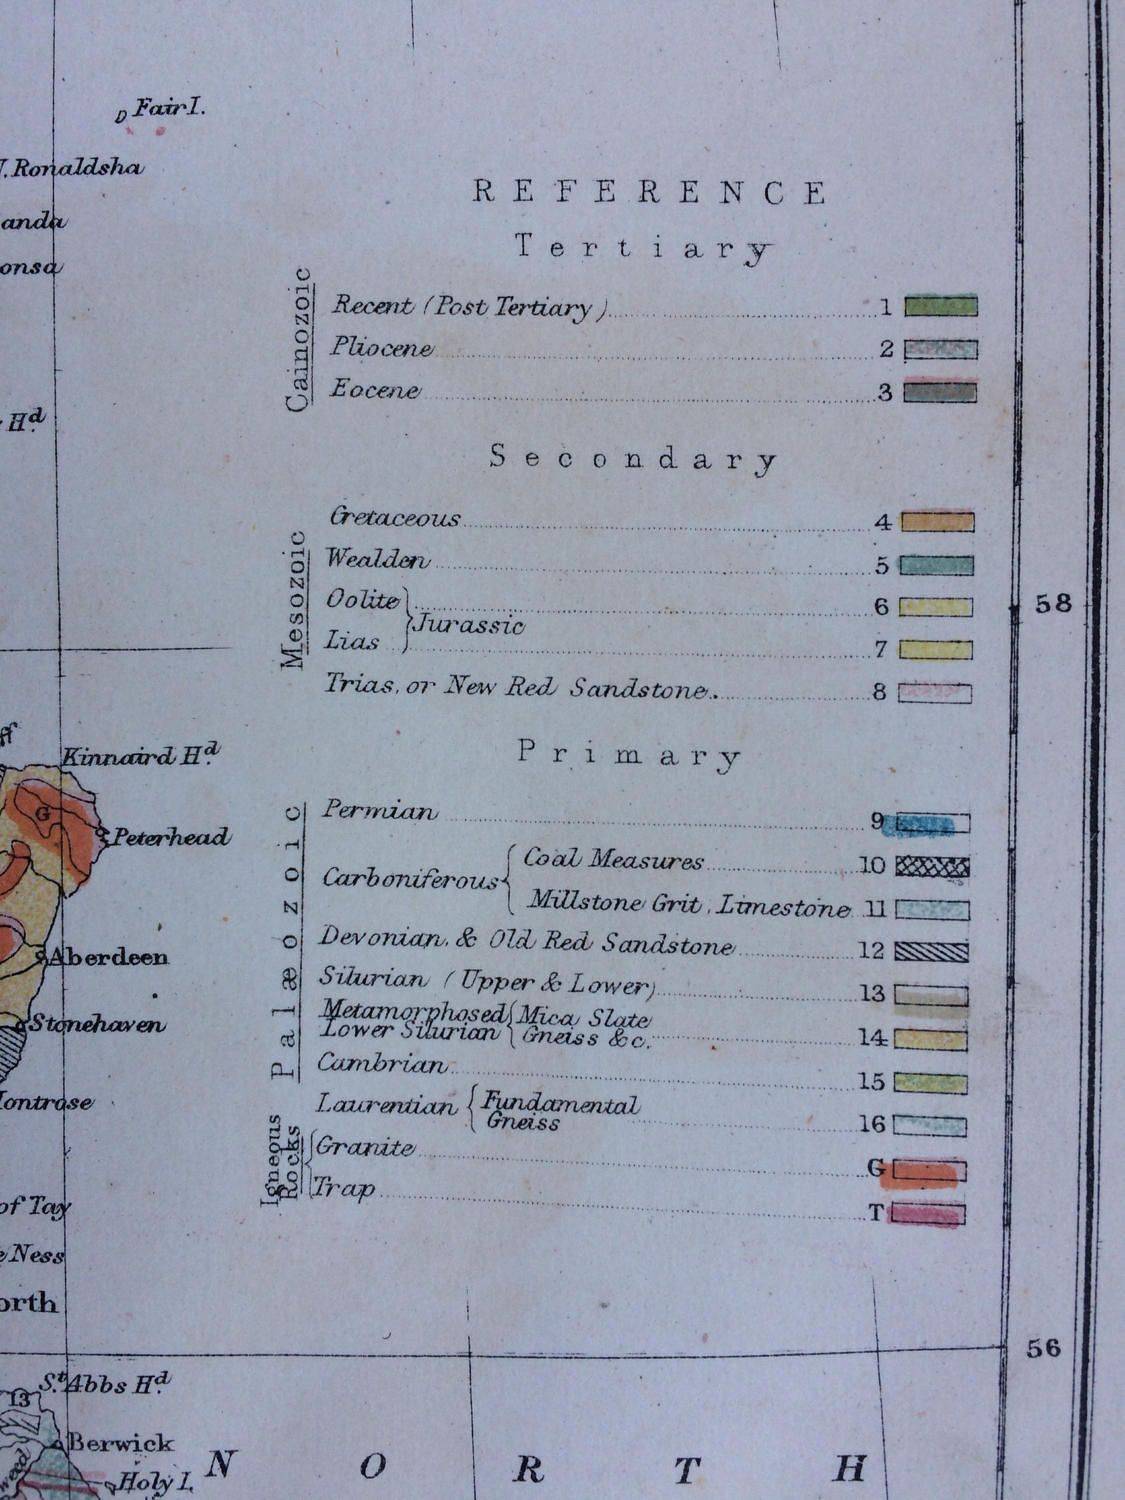 Fair I.
Ronaldsha
anda
onsa
Hd.
REFERENCE
Tertiary
Cainozoic
Recent (Post Tertiary) 1
Pliocene 2
Eocene 3
Secondary
Mesozoic
Cretaceous 4
Wealden 5
Oolite 6
Jurassic
Lias 7
Trias, or New Red Sandstone 8
58
Primary
Palæozoic
Permian 9
Carboniferous
Coal Measures 10
Millstone Grit, Limestone 11
Devonian, & Old Red Sandstone 12
Silurian (Upper & Lower) 13
Metamorphosed Mica Slate
Lower Silurian Gneiss &c. 14
Cambrian 15
Laurentian Fundamental
Gneiss 16
Igneous Rocks
Granite G
Trap T
ff
Kinnaird Hd.
G
Peterhead
Aberdeen
Stonehaven
ontrose
of Tay
Ness
orth
56
St. Abbs Hd.
13
Berwick
Holy I.
weed
NORTH